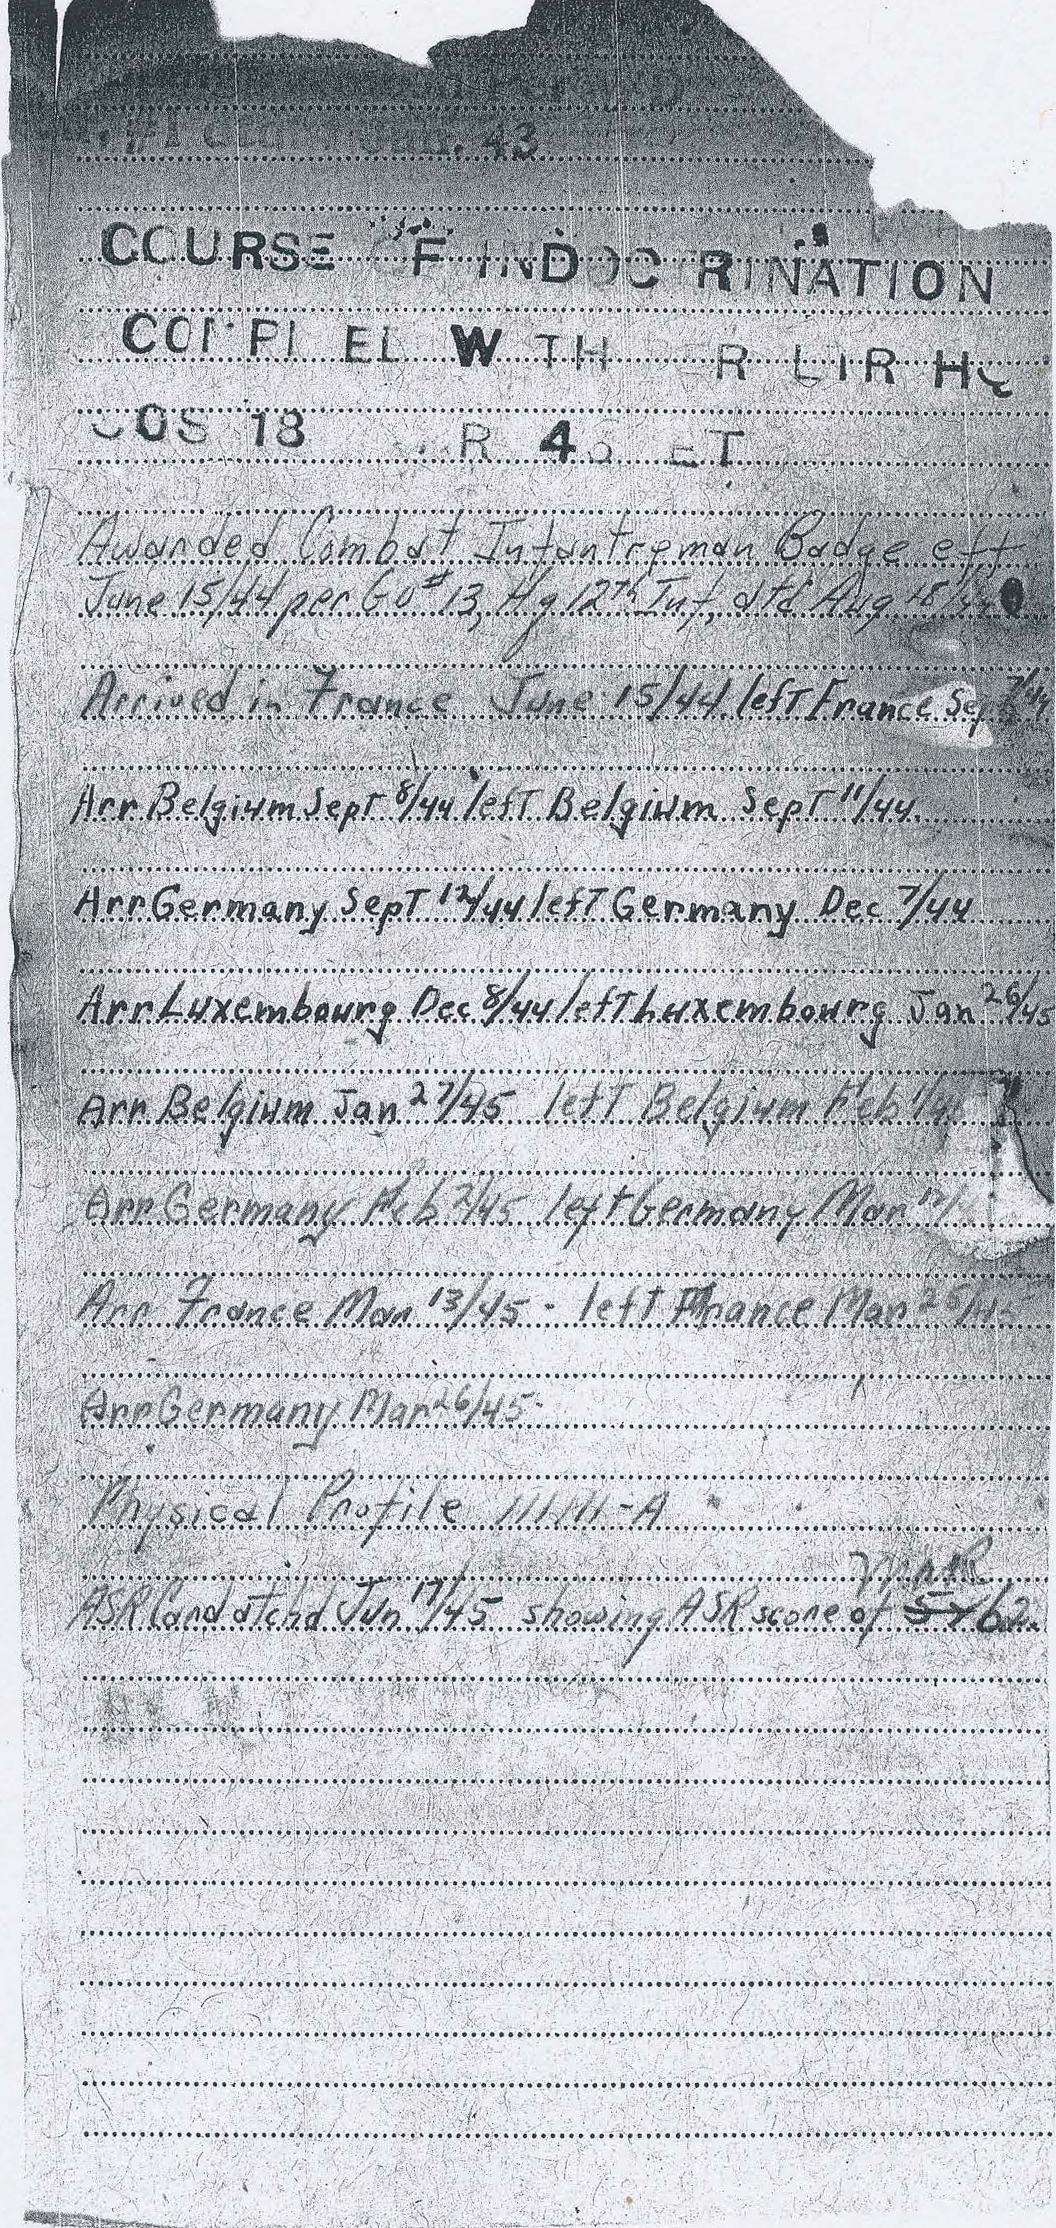 Jan. 43
COURSE OF INDOCTRINATION
COMPLIED WITH PER LTR HQ
COS 18 ET
Awarded Combat Infantryman Badge eff
June 15/44 per GO #13, Hq 12th Inf, dtd Aug 18/44
Arrived in France June 15/44 left France Sep 7/44
Arr Belgium Sept 8/44 left Belgium Sept 11/44
Arr Germany Sept 12/44 left Germany Dec 7/44
Arr Luxembourg Dec 8/44 left Luxembourg Jan 26/45
Arr Belgium Jan 27/45 left Belgium Feb 1/45
Arr Germany Feb 2/45 left Germany Mar 12/
Arr France Mar 13/45 - left France Mar 25/45
Arr Germany Mar 26/45-
Physical Profile 111111-A
ASR Card atchd Jun 17/45 showing ASR score of 62.